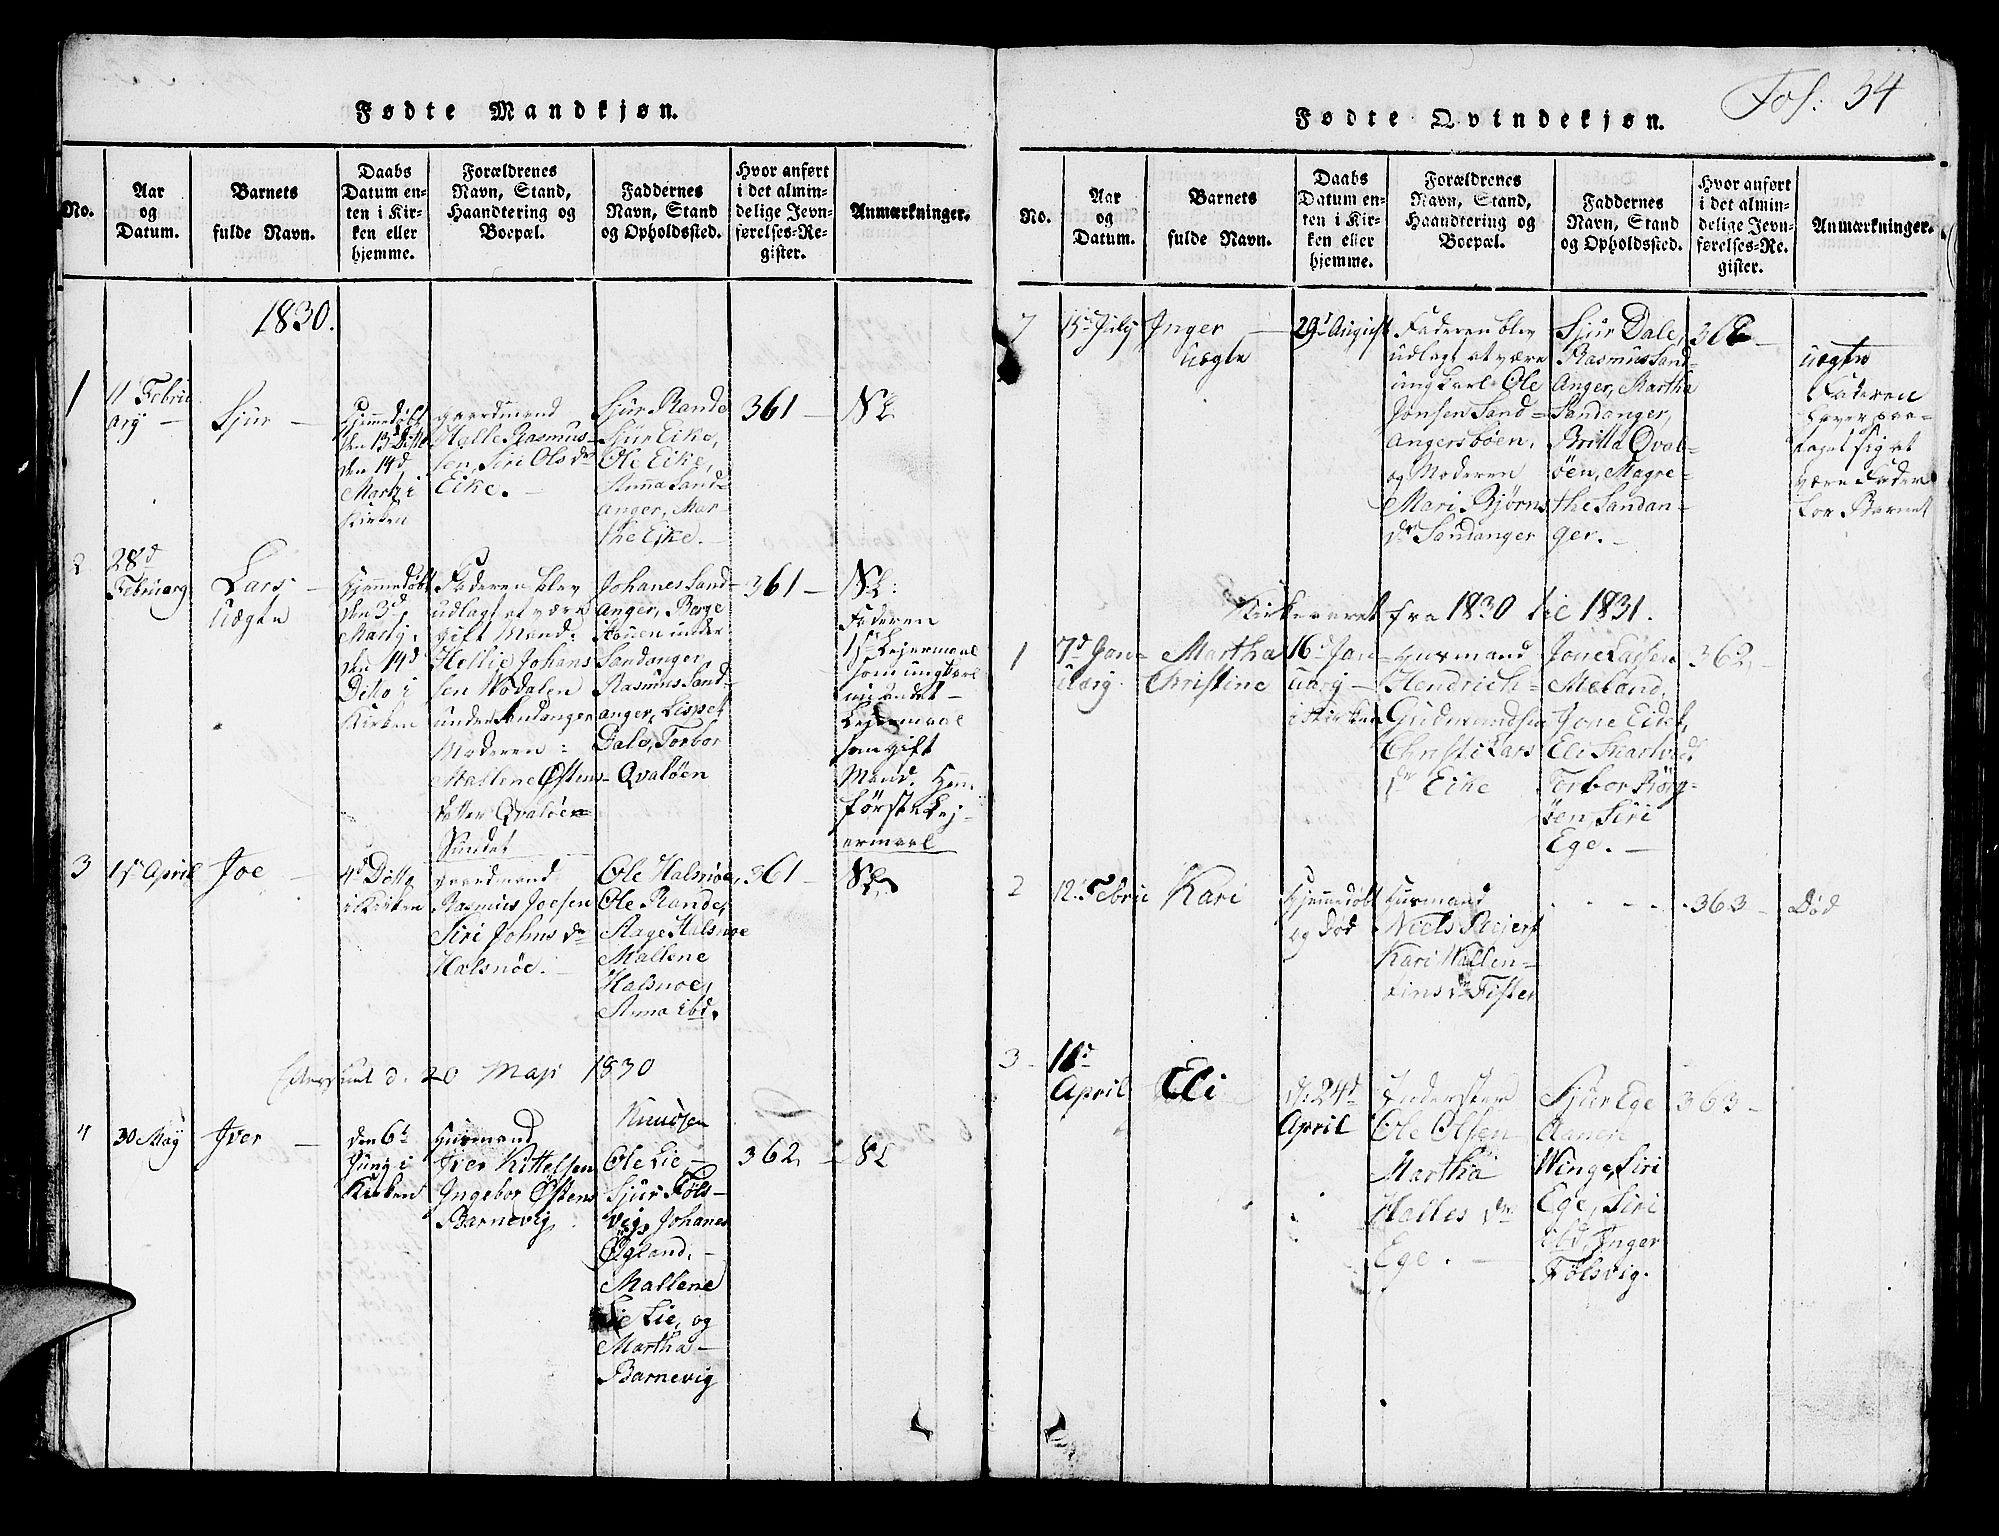 Fødte Mandkjøn.
No.
Aar
og
Datum.
Barnets
fulde Navn.
Daabs
Datum en-
ten i Kir-
ken eller
hjemme.
Forældrenes
Navn, Stand,
Haandtering og
Boepæl.
Faddernes
Navn, Stand
og Opholdssted.
Hvor anført
i det almin-
delige Jevn-
førelses-Re-
gister.
Anmærkninger.
1830.
1
11 Febru
ary
Sjur
Hjemmedøbt
den 13d Dette
den 14d
Marty i
Kirken
gaardmand
Halle Rasmus-
sen, Siri Olsdr
Eike.
Sjur Rande
Sjur Eike,
Ole Eike,
Anna Sand-
anger, Mar-
the Eike.
361
2
28d
February
Lars
Uægte
Hjemmedøbt
den 3d
Marty.
den 14d
Dito i
Kirken
Faderen blev
udlagt at være
gift Mand:
Hellie Johans
sen Vodalen
under Sandanger
Moderen:
Mallene Østens-
datter Qvaløen
Sundet
Johanes Sand-
anger, Berge
under
Sandanger
Rasmus Sand-
anger, Lispet
Dale, Torbor
Qvaløen
361
Faderen
1st Lejermaal
som ungkarl
andet
Lejermaal
som gift
Mand.
første Lej-
ermaal
3
1st April
Joe
4d Dette
i Kirken
gaardmand
Rasmus Joesen
Siri Johnsdr
Halsnøe.
Ole Halsnøe,
Ole Rande,
Aage Halsnøe
Mallene
Halsnoe,
Anna ibd.
361
d. 20 May 1830
4
30 May
Iver
den 6t
Juny i
Kirken
Husmand
Iver Kittelsen
Ingebor Østens
Barnevig
Knudsen
Ole Lie,
Sjur Føls-
vig, Johanes
Øgland,
Mallene
Lie, og
Martha
Barnevig
362
Fol: 34
Fødte Qvindekjøn.
No.
Aar
og
Datum.
Barnets
fulde Navn.
Daabs
Datum en-
ten i Kir-
ken eller
hjemme.
Forældrenes
Navn, Stand,
Haandtering og
Boepæl.
Faddernes
Navn, Stand
og Opholdssted.
Hvor anført
i det almin-
delige Jevn-
førelses-Re-
gister.
Anmærkninger.
7
15 July
Inger
Uægte
29d August
Faderen blev
udlagt at være
ungkarl Ole
Jonsen Sand-
angersbøen,
og Moderen
Mari Bjørns
dr Sandanger
Sjur Dale,
Rasmus Sand-
Anger, Martha
Sandanger,
Britta Qval-
øen, Magre-
the Sandan-
ger.
362
Uægte
Faderen
haver paa-
taget sig at
være Fader
for Barnet
Kirkeaaret fra 1830 til 1831.
1
7d Jan-
uary
Martha
Christine
16d Jan-
uary
i Kirken
Husmand
Hendrich
Gudmundsen
Christi Lars
dr Eike
Jone Larsen
Meland,
Jone Eide,
Eli
Torbor Børg-
øen, Siri
Ege.
362
2
12. Febru
Kari
Hjemmedøbt
og Død
Husmand
Niels
Kari Wallen-
tinsdr Fister
363
Død
3
11d
April
Eli
d. 24d
April
Inderster
Ole Olsen
Martha
Hallesdr
Ege.
Sjur Ege
Winge, Siri
Ege, Siri
ibd, Inger
Følsvig.
363